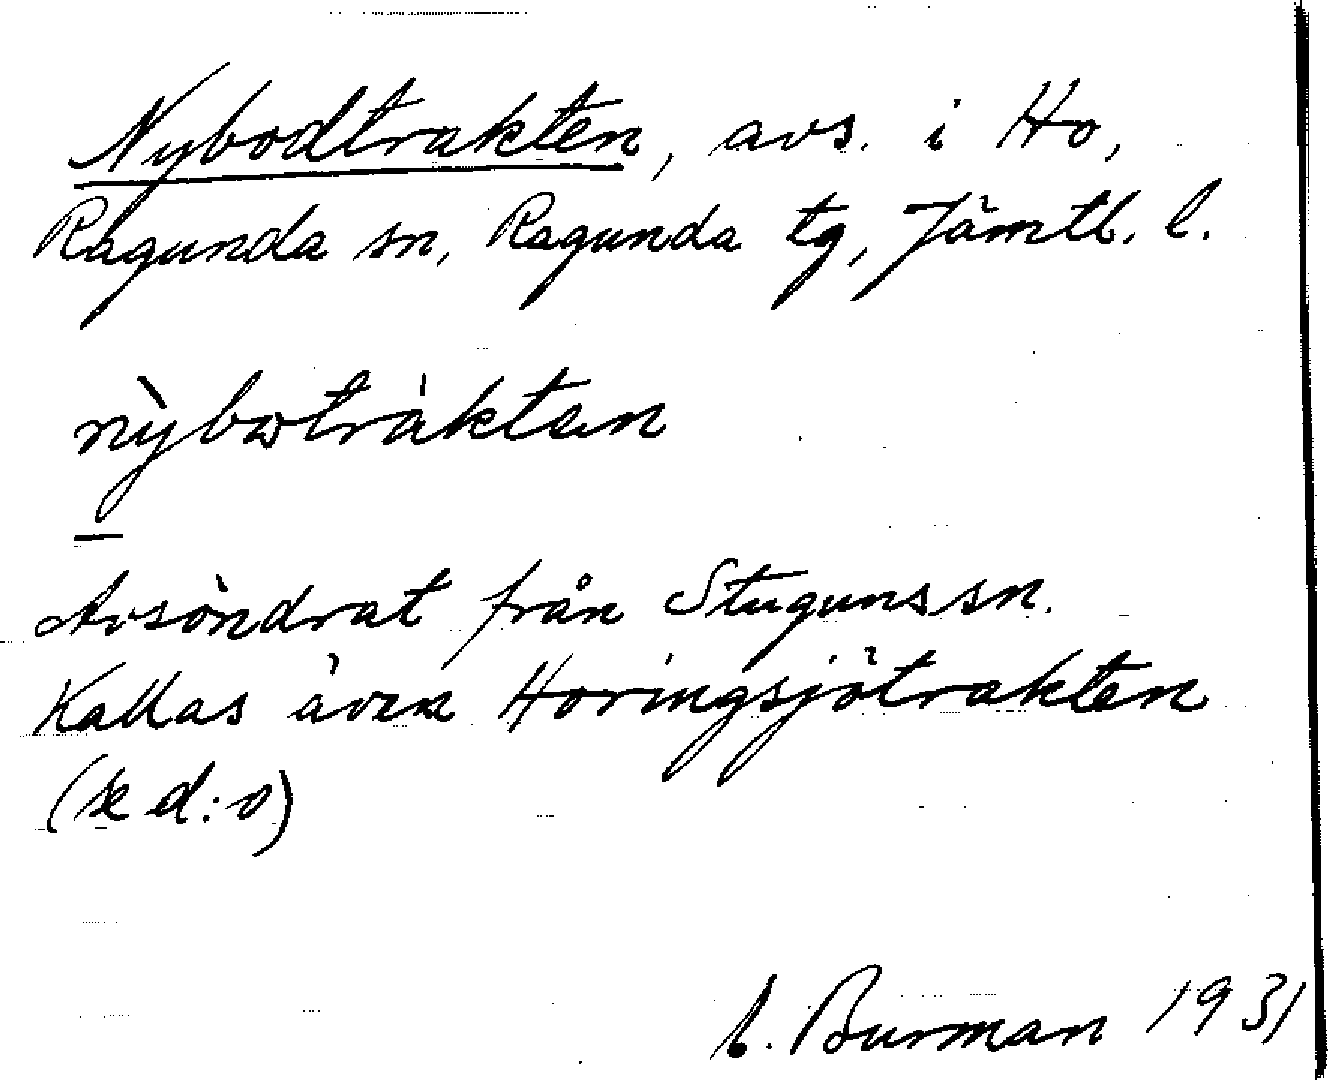 Nybodtrakten, avs. i Ho,
Ragunda sn, Ragunda tg, Jämtl. l.
Avsöndrat från Stuguns sn.
Kallas även Horingsjötrakten
(se d:o)
Burman 1931